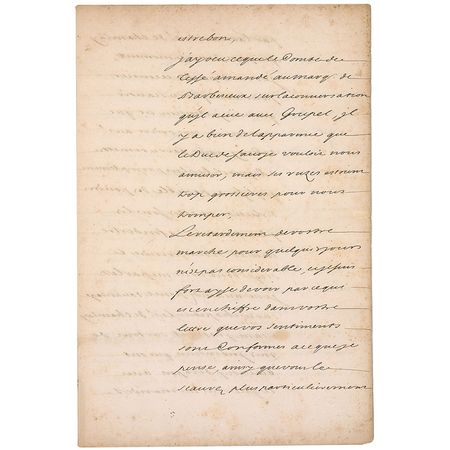 estre bon,
j'ay veu ce que le Comte de
Tessé a mandé au marq. de
Barbesieux sur la conversation
qu'il a eue avec Groupel, il
y a bien de l'apparence que
le Duc de Savoye vouloit nous
amuser, mais ses ruzes estoient
trop grossieres pour nous
tromper,
Le retardement de vostre
marche pour quelques jours
n'est pas considerable, et je suis
fort ayse de voir par ce qui
est en chiffre dans vostre
lettre que vos sentiments
sont conformes a ce que je
pense, ainsy que vous le
sçaurez plus particulierement